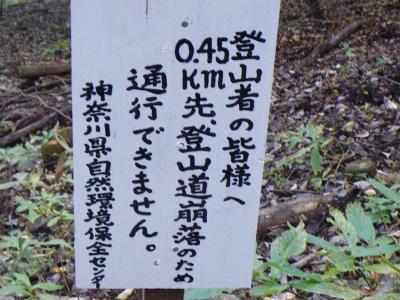 登山者の皆様へ
0.45KM先、登山道崩落のため
通行できません。
神奈川県自然環境保全センター